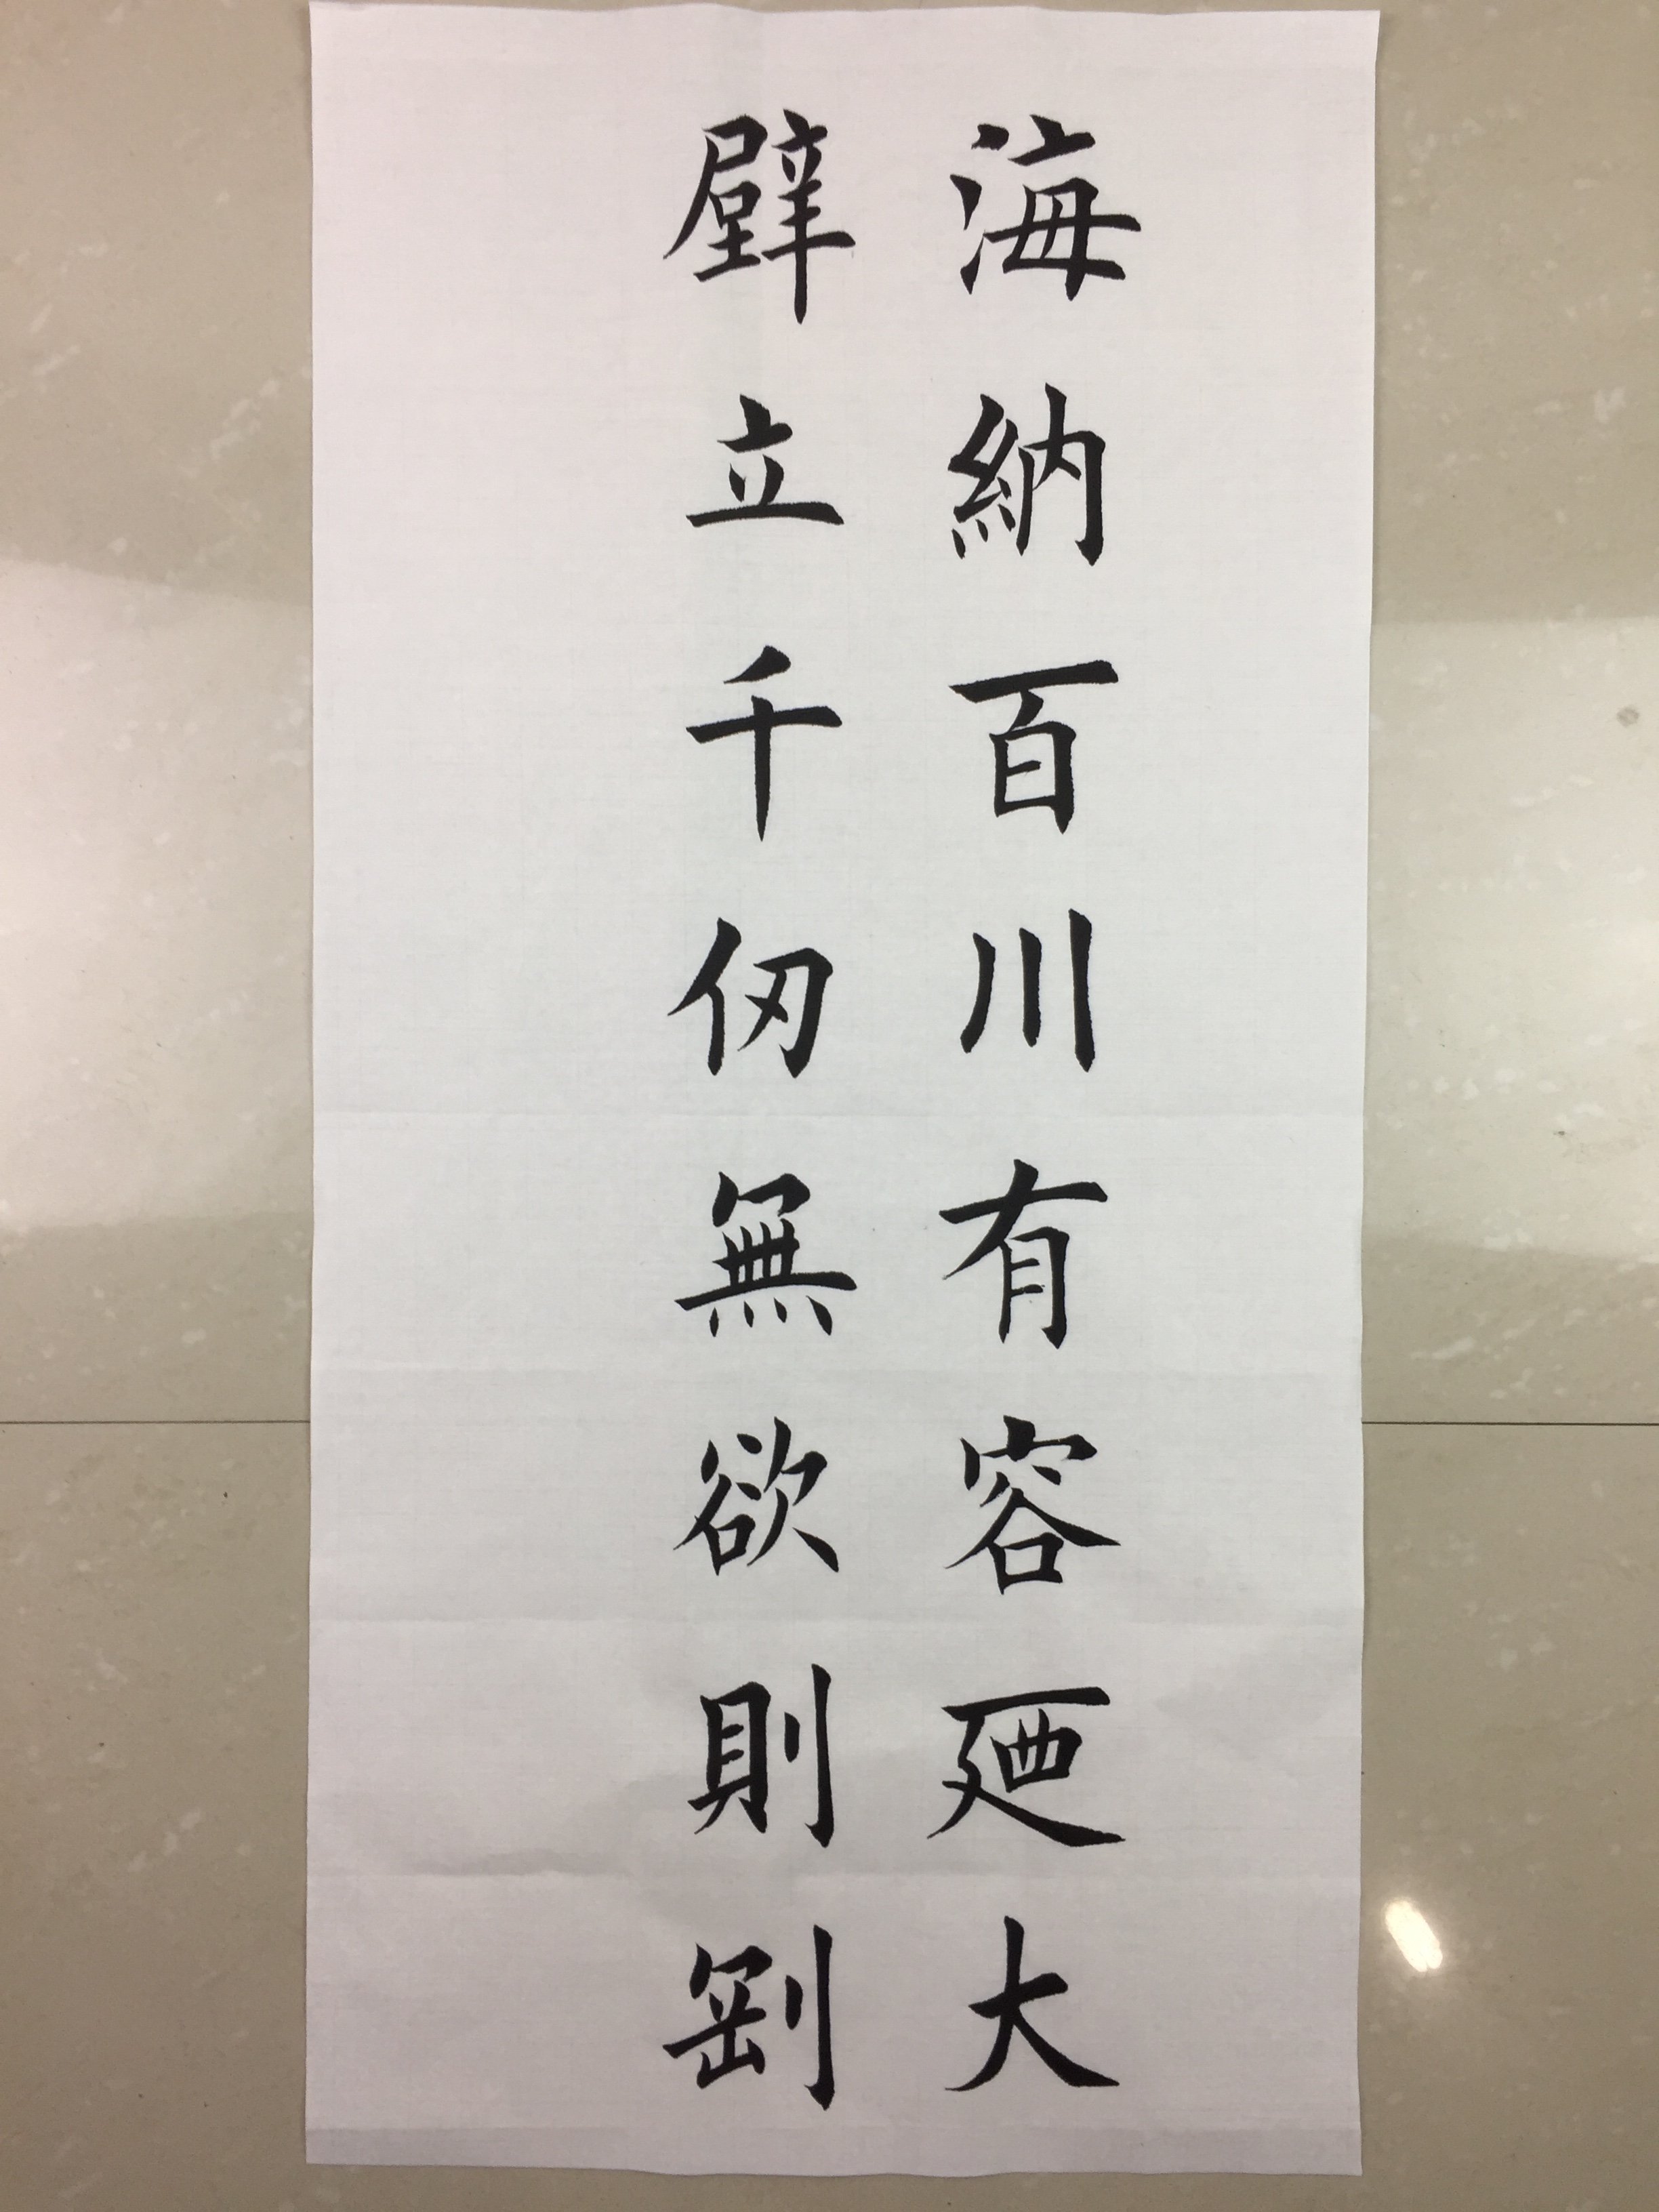 海納百川有容廼大
壁立千仞無欲則剛